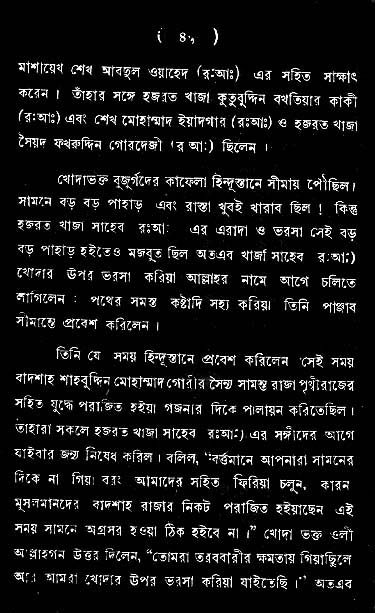 ( ৪৯ )
মাশায়েখ শেখ আবদুল ওয়াহেদ (র:আঃ) এর সহিত সাক্ষাৎ
করেন । তাঁহার সঙ্গে হজরত খাজা কুতুবুদ্দিন বখতিয়ার কাকী
(র:আঃ) এবং শেখ মোহাম্মাদ ইয়াদগার (রঃআঃ) ও হজরত খাজা
সৈয়দ ফখরুদ্দিন গোরদেজী (র আ:) ছিলেন ।
খোদাভক্ত বূজুর্গদের কাফেলা হিন্দূস্তানে সীমায় পৌছিল।
সামনে বড় বড় পাহাড় এবং রাস্তা খুবই খারাব ছিল ! কিন্তু
হজরত খাজা সাহেব রঃআঃ এর এরাদা ও ভরসা সেই বড়
বড় পাহাড় হইতেও মজবুত ছিল অতএব খাজা সাহেব রঃআঃ)
খোদার উপর ভরসা করিয়া আল্লাহর নামে আগে চলিতে
লাগিলেন : পথের সমস্ত কষ্টাদি সহ্য করিয়া তিনি পাঞ্জাব
সীমান্তে প্রবেশ করিলেন ।
তিনি যে সময় হিন্দূস্তানে প্রবেশ করিলেন সেই সময়
বাদশাহ শাহবুদ্দিন মোহাম্মাদ গোরীর সৈন্য সামন্ত রাজা পৃথ্বীরাজের
সহিত যুদ্ধে পরাজিত হইয়া গজনার দিকে পালায়ন করিতেছিল।
তাহারা সকলে হজরত খাজা সাহেব রঃআ:) এর সঙ্গীদের আগে
যাইবার জন্য নিষেধ করিল। বলিল, “বর্ত্তমানে আপনারা সামনের
দিকে না গিয়া বরং আমাদের সহিত ফিরিয়া চলুন, কারন
মূসলমানদের বাদশাহ রাজার নিকট পরাজিত হইয়াছেন এই
সময় সামনে অগ্রসর হওয়া ঠিক হইবে না।” খোদা ভক্ত ওলী
আল্লাহগন উত্তর দিলেন, “তোমরা তরববারীর ক্ষমতায় গিয়াছিলে
আর আমরা খোদার উপর ভরসা করিয়া যাইতেছি।” অতএব